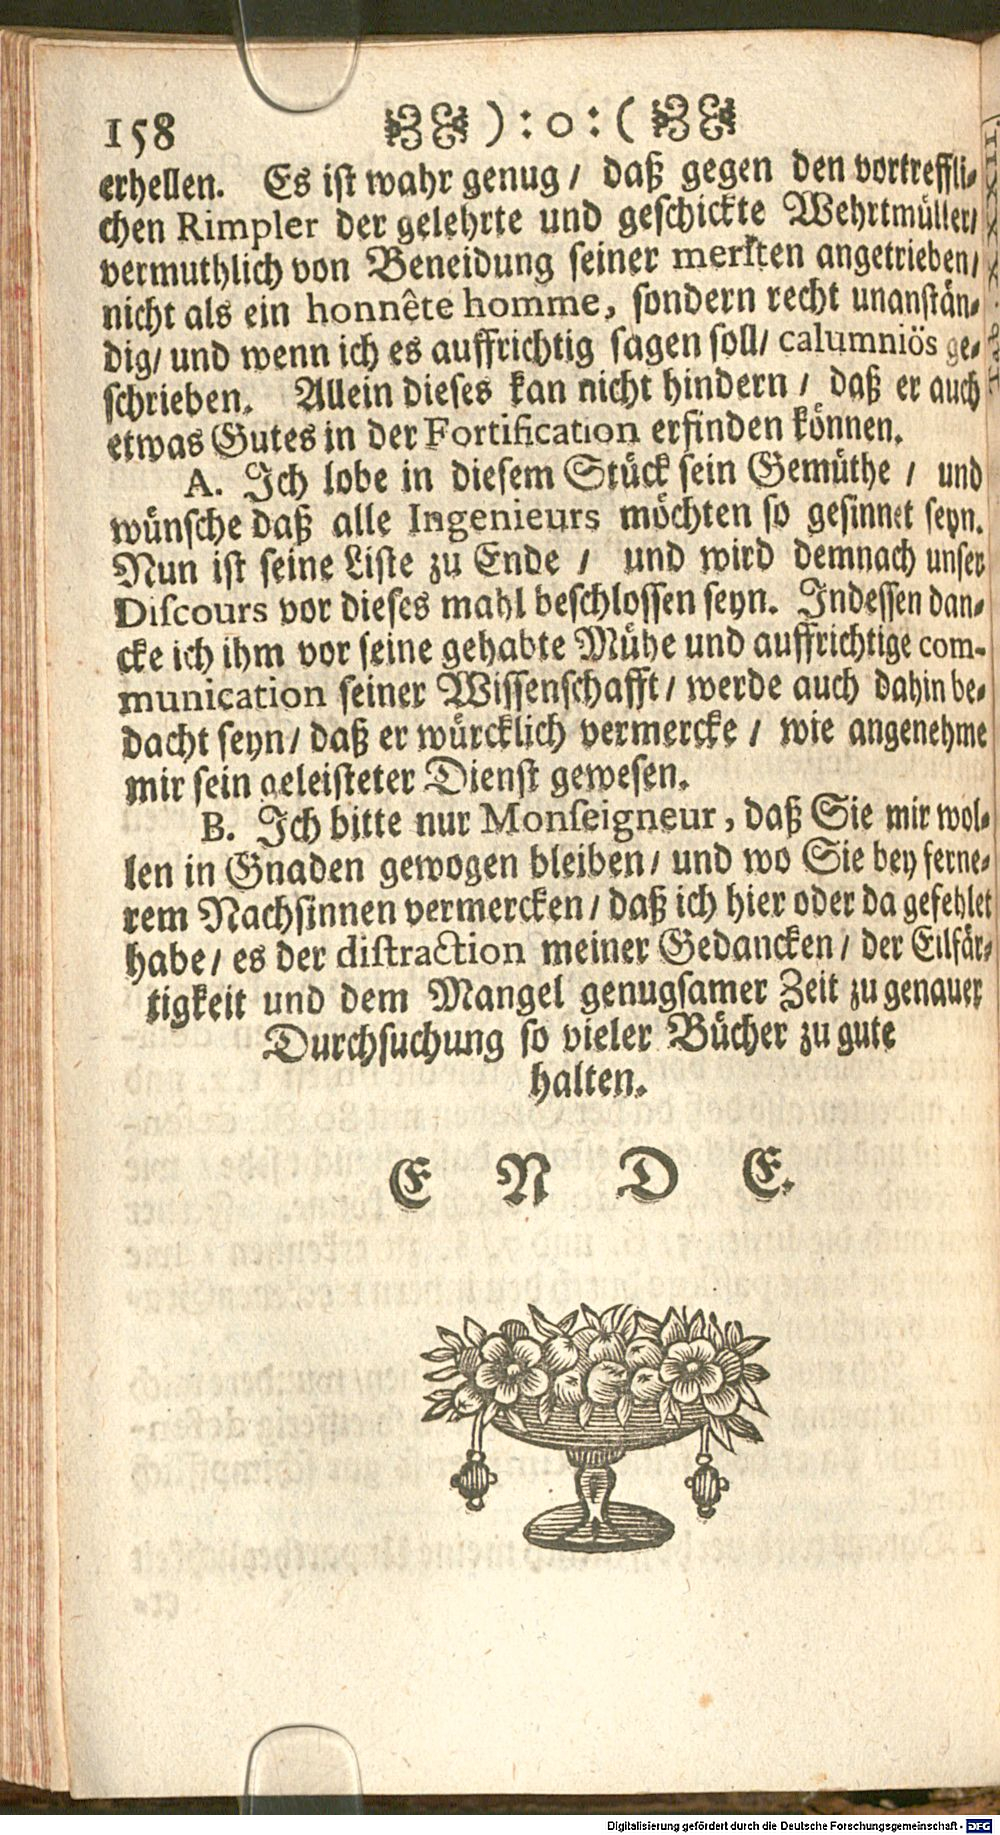 158 ):o:(
erhellen. Es ist wahr genug / daß gegen den vortreffli-
chen Rimpler der gelehrte und geschickte Wehrtmüller/
vermuthlich von Beneidung seiner merkten angetrieben/
nicht als ein honnête homme, sondern recht unanstän-
dig/ und wenn ich es auffrichtig sagen soll/ calumniös ge-
schrieben. Allein dieses kan nicht hindern / daß er auch
etwas Gutes in der Fortification erfinden können.
A. Ich lobe in diesem Stück sein Gemüthe / und
wünsche daß alle Ingenieurs möchten so gesinnet seyn.
Nun ist seine Liste zu Ende / und wird demnach unser
Discours vor dieses mahl beschlossen seyn. Indessen dan-
cke ich ihm vor seine gehabte Mühe und auffrichtige com-
munication seiner Wissenschafft/ werde auch dahin be-
dacht seyn/ daß er würcklich vermercke / wie angenehme
mir sein geleisteter Dienst gewesen.
B. Ich bitte nur Monseigneur, daß Sie mir wol-
len in Gnaden gewogen bleiben/ und wo Sie bey ferne-
rem Nachsinnen vermercken/ daß ich hier oder da gefehlet
habe/ es der distraction meiner Gedancken/ der Eilfär-
tigkeit und dem Mangel genugsamer Zeit zu genauer
Durchsuchung so vieler Bücher zu gute
halten.
E N D E.
Digitalisierung gefördert durch die Deutsche Forschungsgemeinschaft - DFG